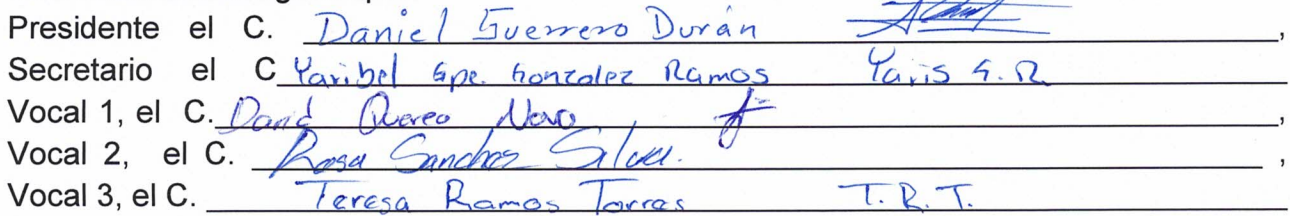 Presidente el C. Daniel Guerrero Durán,
Secretario el C Yaribel Gpe. Gonzalez Ramos Yaris G.R
Vocal 1, el C. David Nava,
Vocal 2, el C. Rosa Sanchez Silva.,
Vocal 3, el C. Teresa Ramos Torres T.R.T.